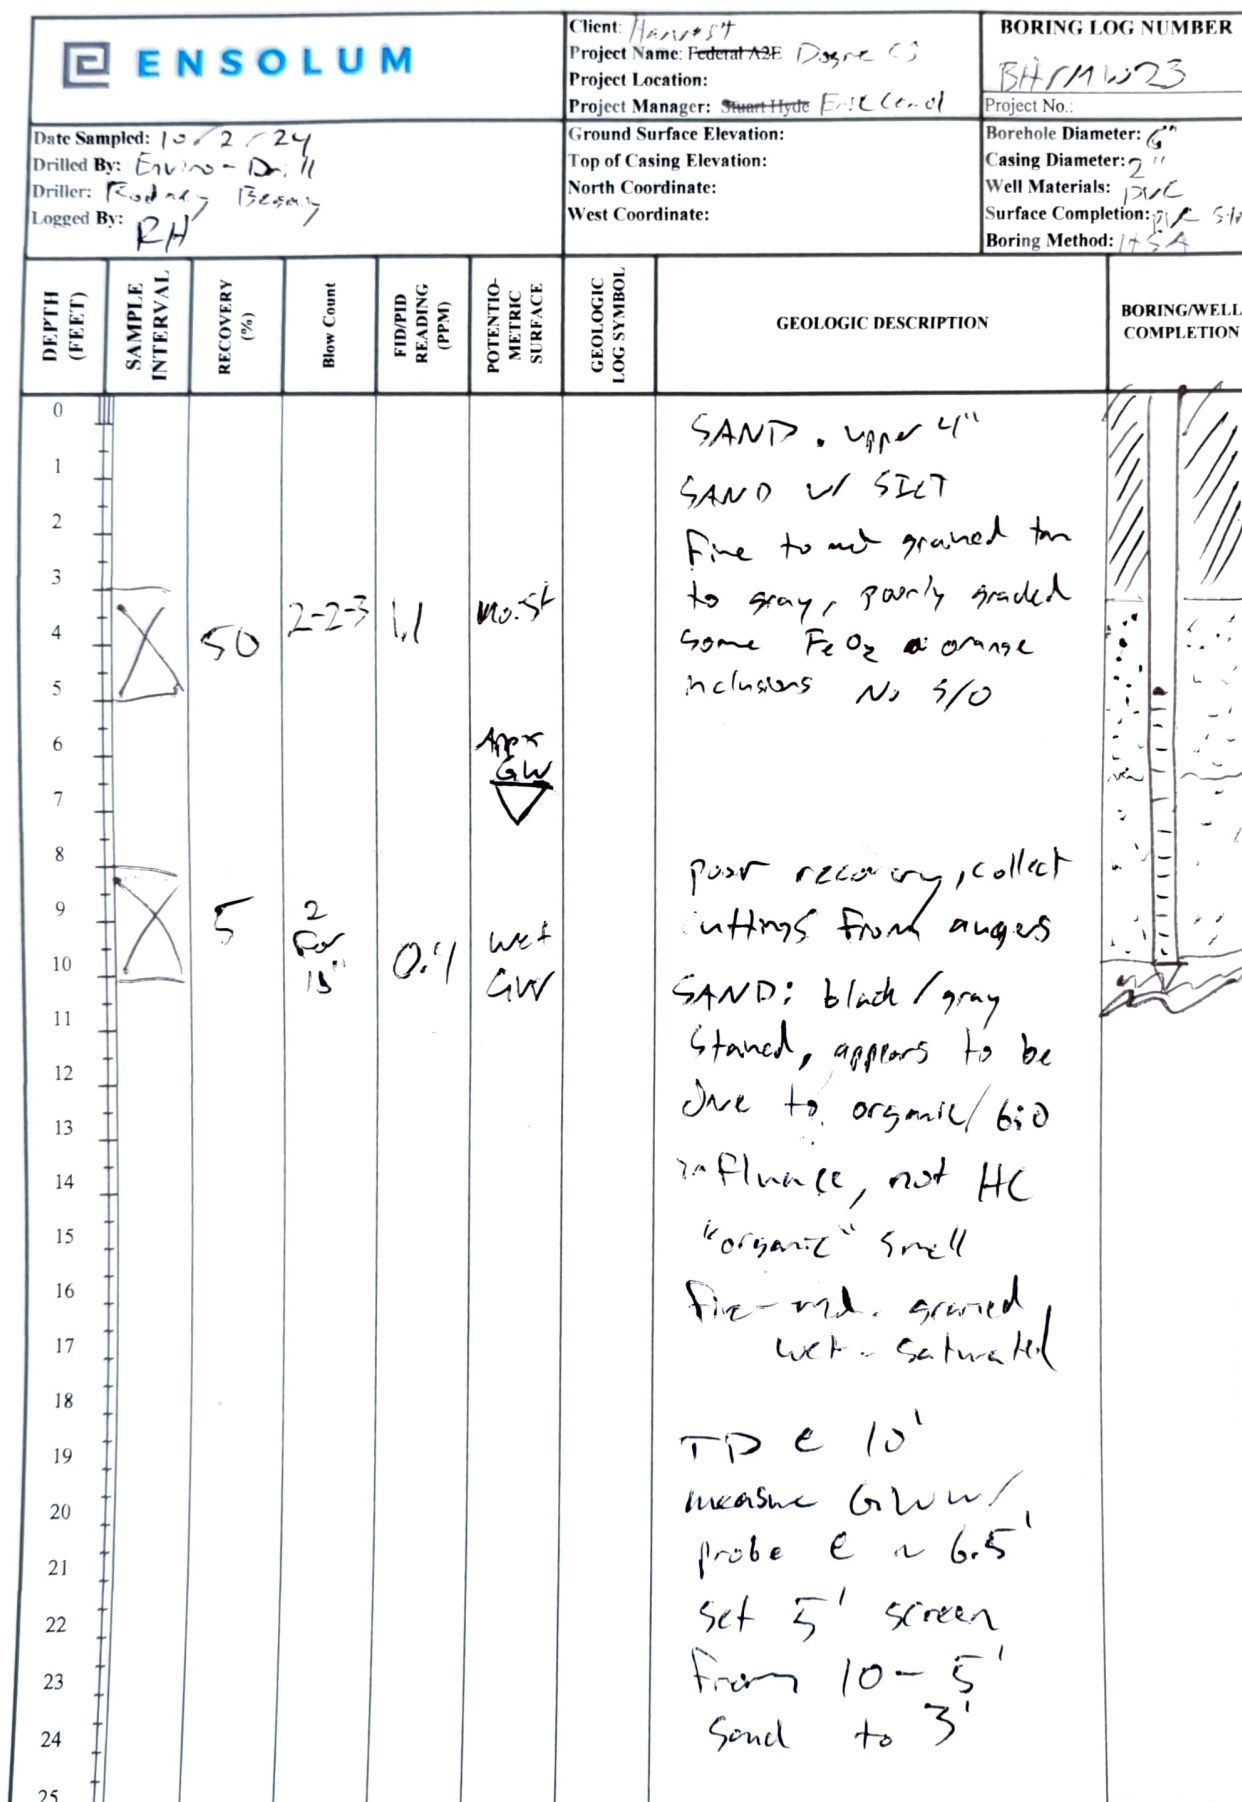 ENSOLUM
Client: Harvest
Project Name: Federal A2E Dogie CS
Project Location:
Project Manager: Stuart Hyde Eric Carroll
BORING LOG NUMBER
BH/MW23
Project No.:
Date Sampled: 10/2/24
Drilled By: Enviro-Drill
Driller: Rodney
Logged By: RH
Ground Surface Elevation:
Top of Casing Elevation:
North Coordinate:
West Coordinate:
Borehole Diameter: 6"
Casing Diameter: 2"
Well Materials: PVC
Surface Completion: PVC
Boring Method: HSA
DEPTH (FEET)
SAMPLE INTERVAL
RECOVERY (%)
Blow Count
FID/PID READING (PPM)
POTENTIO-METRIC SURFACE
GEOLOGIC LOG SYMBOL
GEOLOGIC DESCRIPTION
BORING/WELL COMPLETION
0
1
2
3
4
5
6
7
8
9
10
11
12
13
14
15
16
17
18
19
20
21
22
23
24
25
50
2-2-3
1.1
Moist
Appx
GW
5
2
For
18"
0.4
wet
GW
SAND. upper 4"
SAND w/ SILT
Fine to med grained tan
to gray, poorly graded
some FeO2 orange
inclusions No S/O
poor recovery, collect
cuttings from augers
SAND: black/gray
stained, appears to be
due to organic/bio
influence, not HC
"organic" smell
fine-med. grained,
wet - saturated
TD @ 10'
measure GW w/
probe @ ~ 6.5'
Set 5' screen
from 10-5'
Sand to 3'